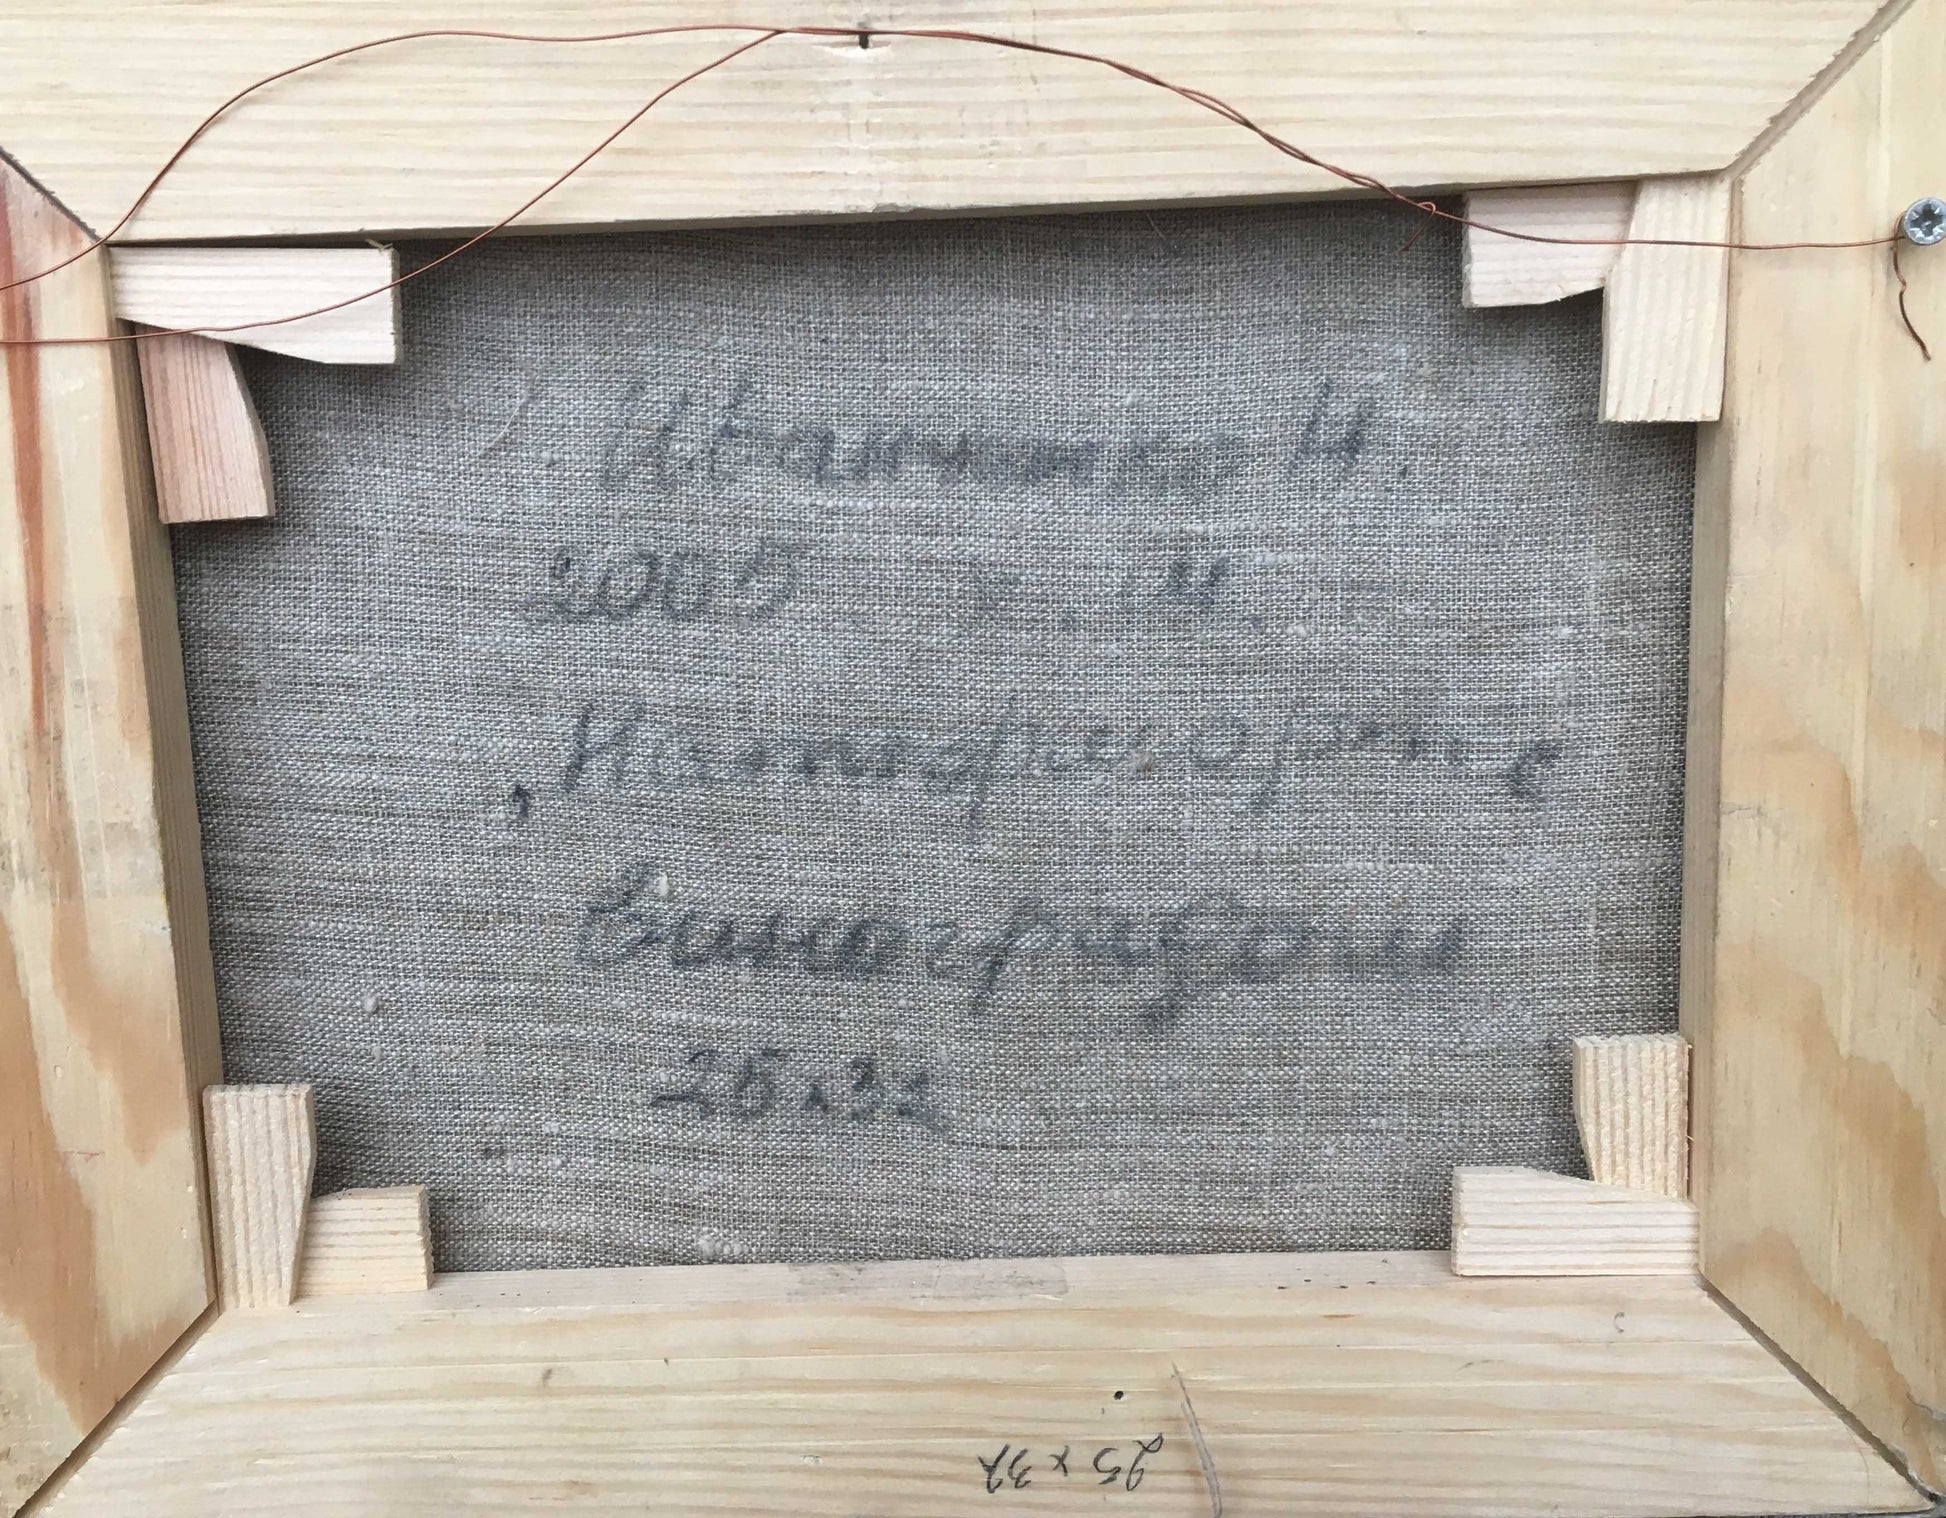 Иванкин Н.
2005 г. М.
„Натюрморт с
виноградом
25х32
25 x 32